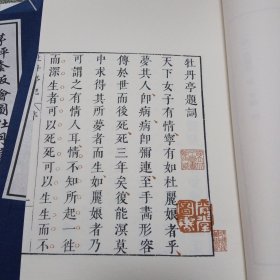 牡丹亭題詞
天下女子有情寧有如杜麗娘者乎
夢其人即病病即彌連至手畫形容
傳於世而後死死三年矣復能溟莫
中求得其所夢者而生如麗娘者乃
可謂之有情人耳情不知所起一往
而深生者可以死死可以生生而不
茅評套版會圖牡丹亭